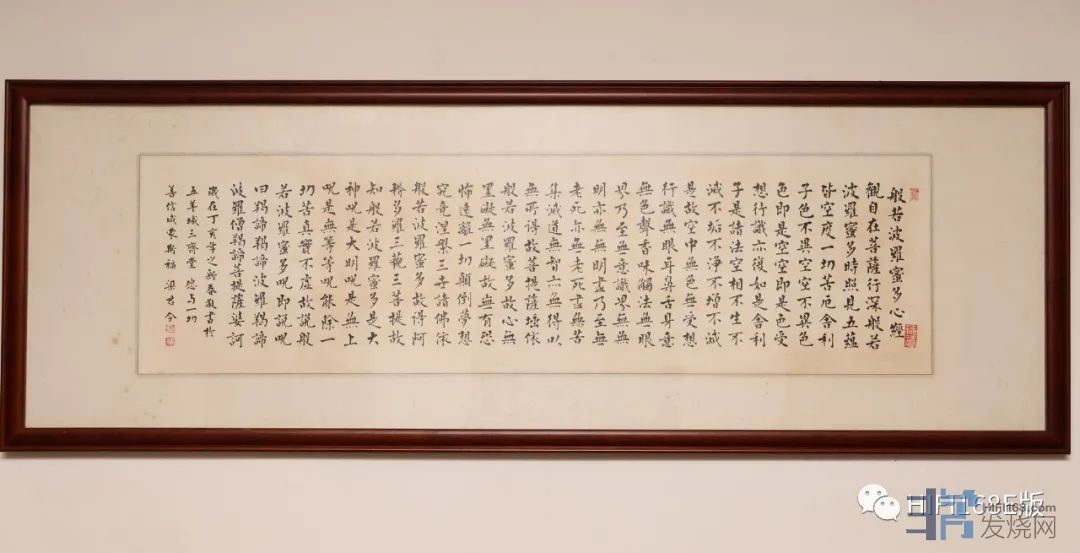 般若波羅蜜多心經
觀自在菩薩行深般若
波羅蜜多時照見五蘊
皆空度一切苦厄舍利
子色不異空空不異色
色即是空空即是色受
想行識亦復如是舍利
子是諸法空相不生不
滅不垢不淨不增不減
是故空中無色無受想
行識無眼耳鼻舌身意
無色聲香味觸法無眼
界乃至無意識界無無
明亦無無明盡乃至無
老死亦無老死盡無苦
集滅道無智亦無得以
無所得故菩提薩埵依
般若波羅蜜多故心無
罣礙無罣礙故無有恐
怖遠離一切顛倒夢想
究竟涅槃三世諸佛依
般若波羅蜜多故得阿
耨多羅三藐三菩提故
知般若波羅蜜多是大
神呪是大明呪是無上
呪是無等等呪能除一
切苦真實不虛故說般
若波羅蜜多呪即說呪
曰羯諦羯諦波羅羯諦
波羅僧羯諦菩提薩婆訶
歲在丁亥年之新春敬書於
五羊城三齋堂 与一切
善信成衆斯福 梁君令
HIFI168E版
HIFI168.com
发烧网